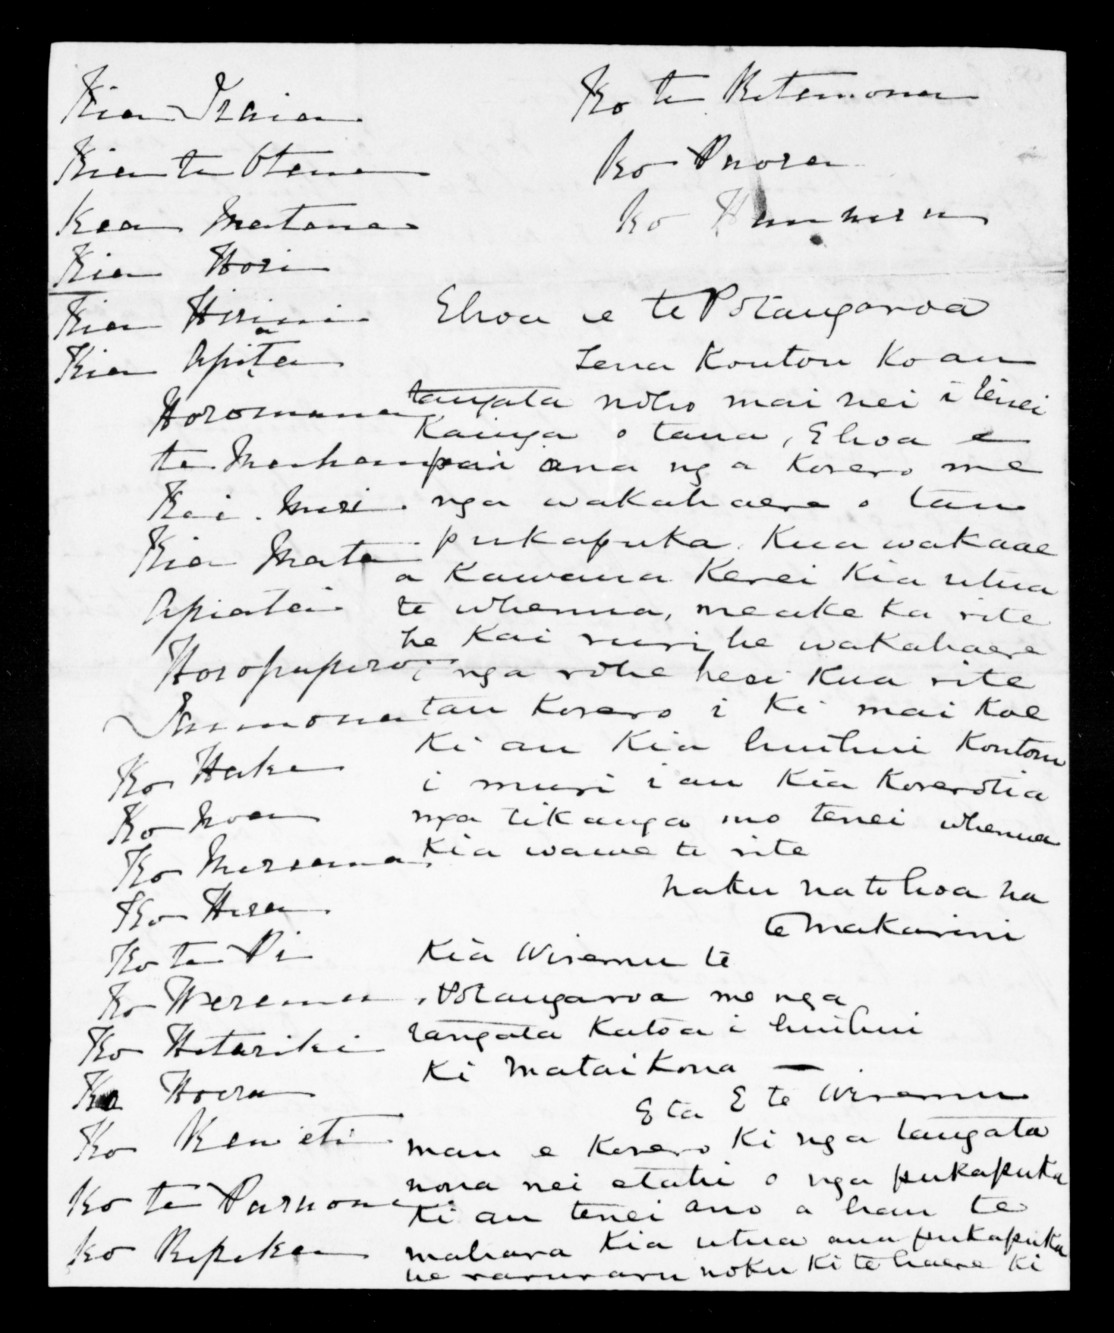 Kia Isaia
Kia te Otene
Kia Matene
Kia Hori
Kia Hirini
Kia Apita
Horomana
te
Kai
Kia Mata
Apiata
Horopapera
Ko Hake
Ko Noa
Ko Meriama
Ko Hera
Ko te Pi
Ko Weremu
Ko Hetariki
Ko Hoera
Ko Reweti
Ko te
Ko Ripeka
Ko te Ritemona
Ko
Ko
Ehoa e te Potangaroa
Tena Koutou Ko au
tangata noho mai nei i tenei
Kanga o tana, Ehoa e
pai ana nga Korero me
nga wakahaere o tau
pukapuka. Kua wakaae
a Kawana Kerei Kia utua
te whenua, meake ka rite
he Kai ruri, he wakahaere
i nga rohe heoi Kua rite
tau Korero i Ki mai Koe
Ki au Kia huihui Koutou
i muri i au Kia Korerotia
nga tikanga mo tenei whenua
Kia wawe te rite
Naku na to hoa na
te Makarini
Kia Wiremu te
Potangaroa me nga
tangata Katoa i huihui
Ki Mataikona —
E ta E te Wiremu
mau e Korero Ki nga tangata
nona nei etahi o nga pukapuka
Ki au tenei ano a hau te
mahara Kia utua ana pukapuka
he raruraru noku Ki te haere Ki